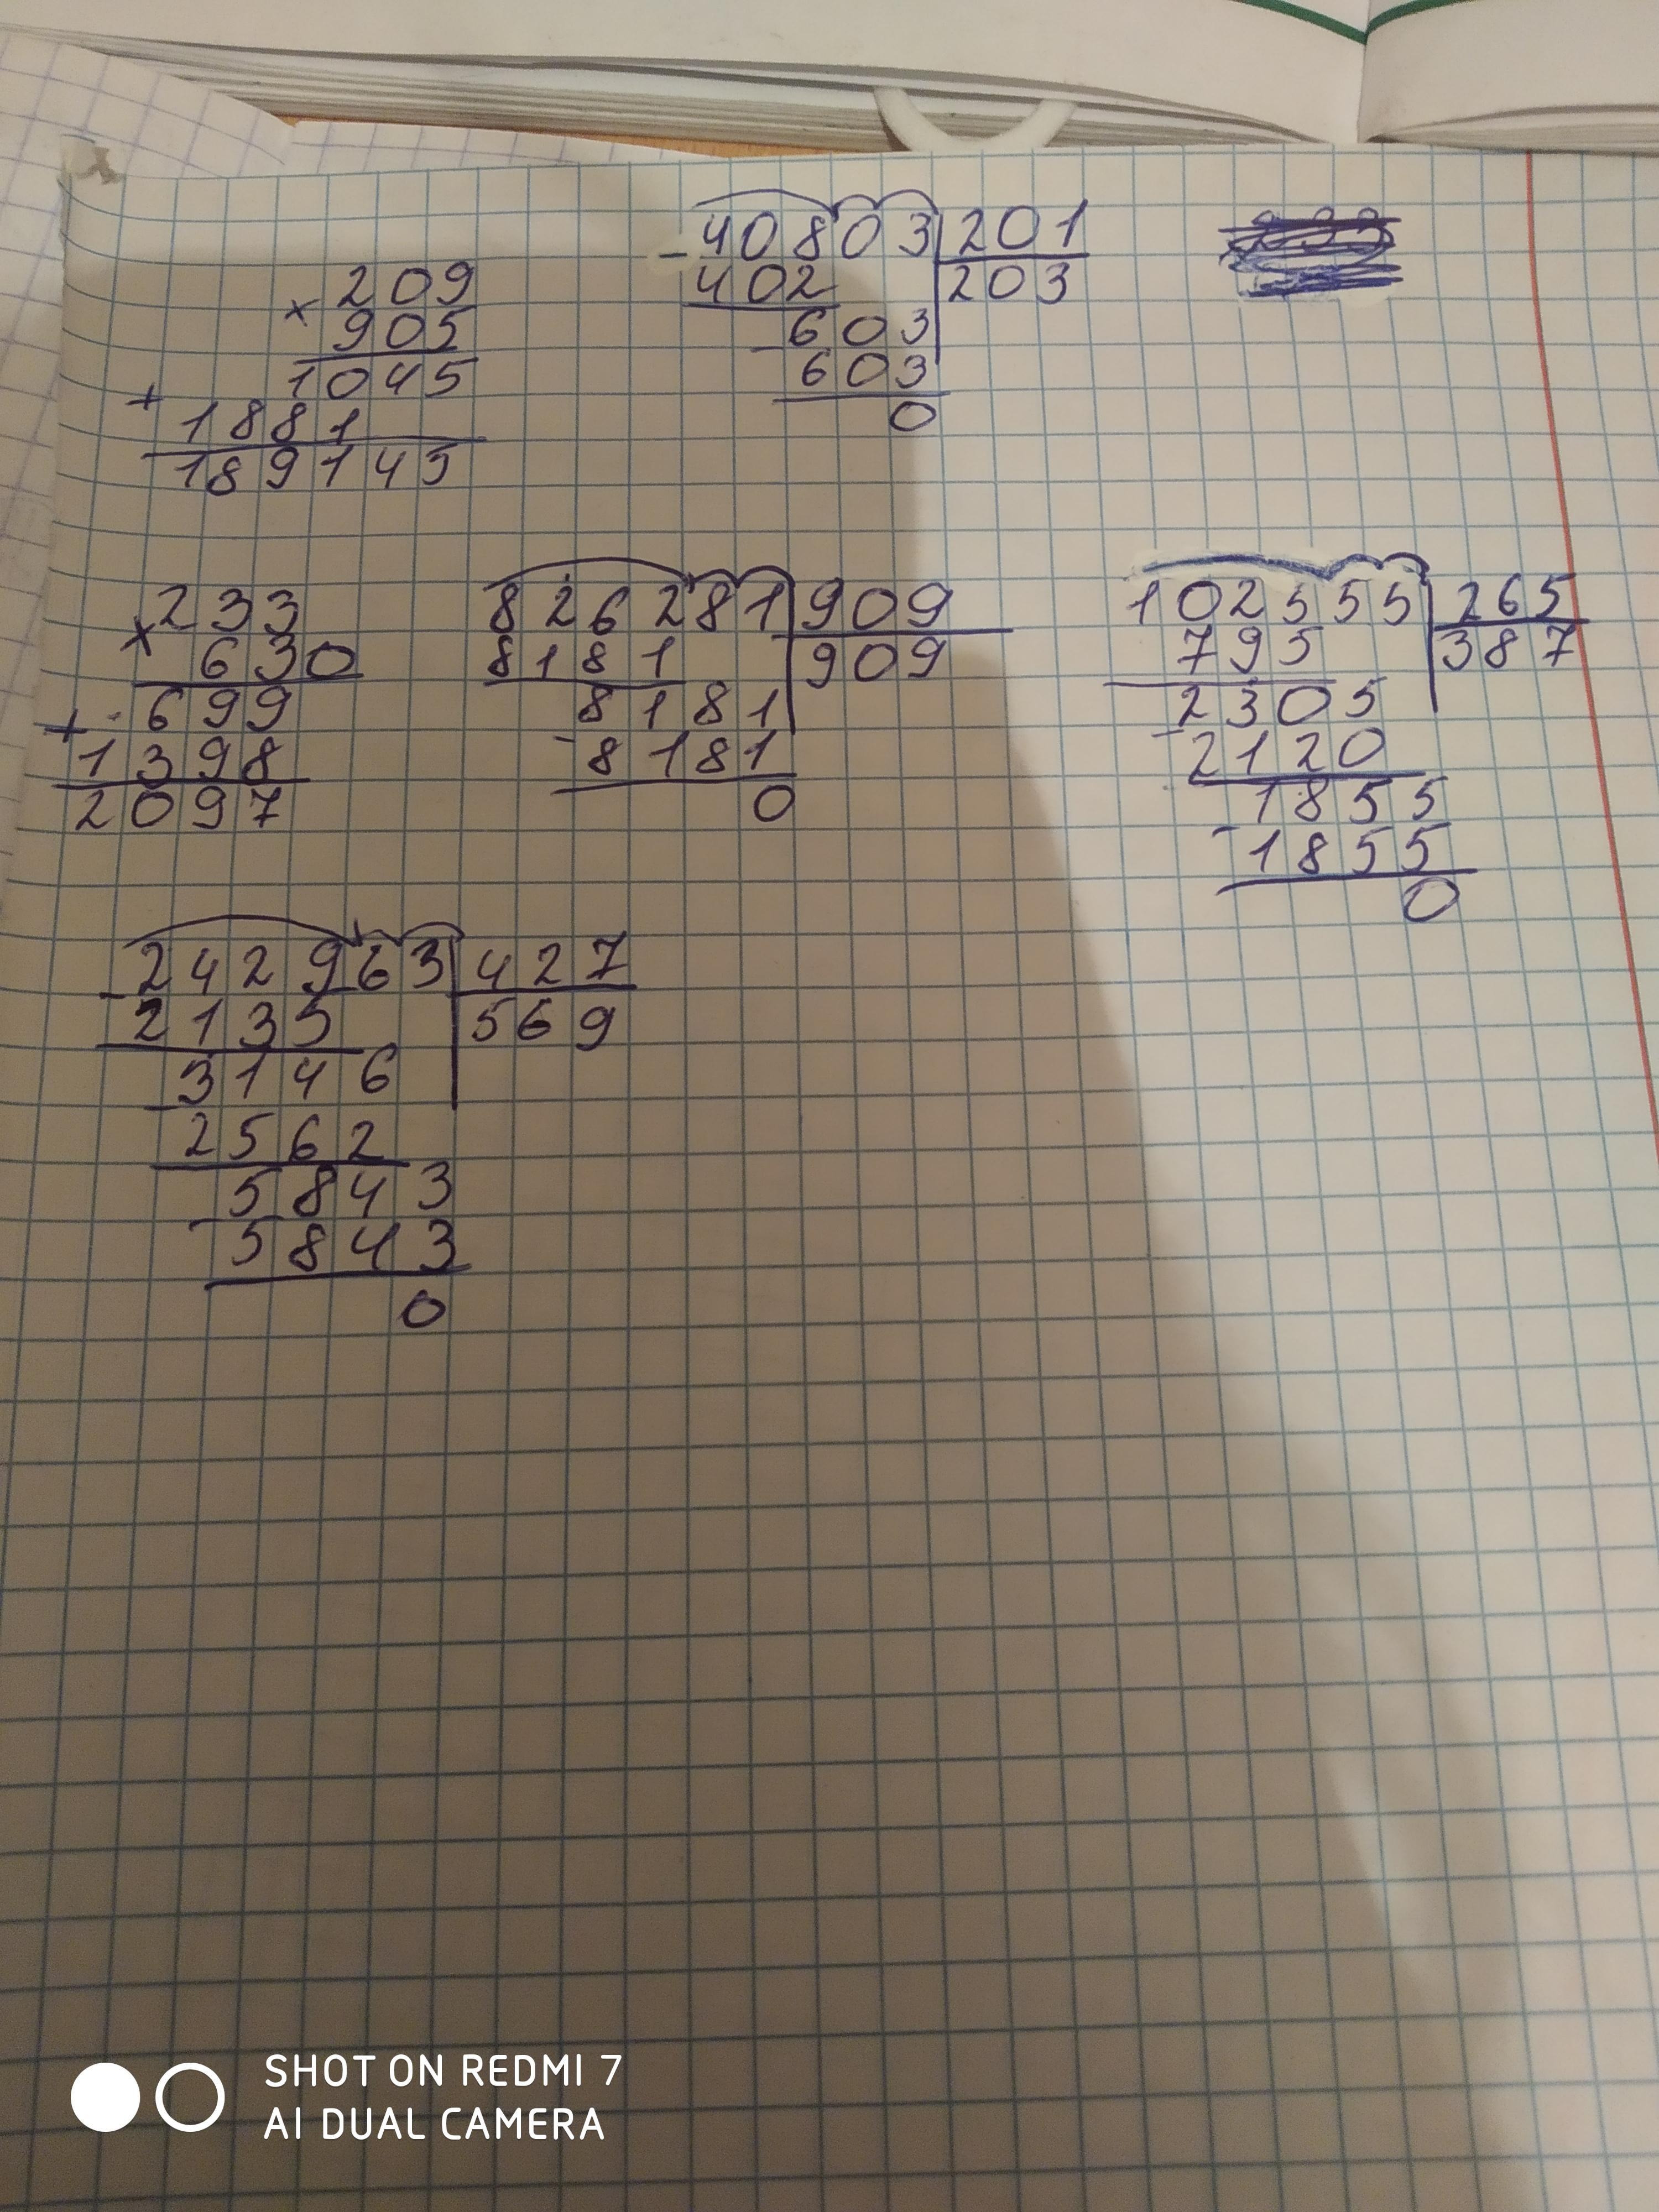 × 209
905
1045
+ 1881
189145
- 40803 | 201
402 | 203
- 603
603
0
× 233
630
+ 699
1398
2097
826281 | 909
8181 | 909
- 8181
8181
0
102555 | 265
795 | 387
- 2305
2120
- 1855
1855
0
- 242963 | 427
2135 | 569
- 3146
2562
- 5843
5843
0
SHOT ON REDMI 7
AI DUAL CAMERA